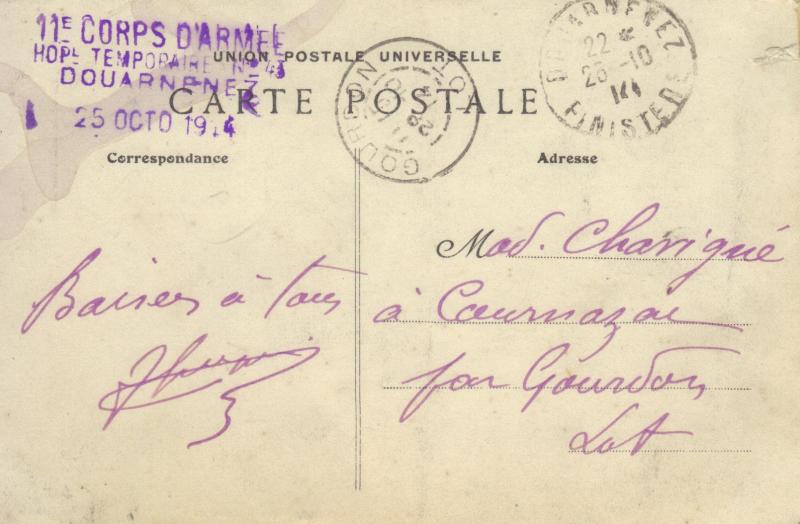 11E CORPS D'ARMÉE
HOPL TEMPORAIRE No 43
DOUARNENEZ
25 OCTO 1914
UNION POSTALE UNIVERSELLE
CARTE POSTALE
GOURDON
LOT
DOUARNENEZ
22
25-10
14
FINISTERE
Correspondance
Adresse
Baisers à tous
Mad. Chavigné
à Cournazac
par Gourdon
Lot